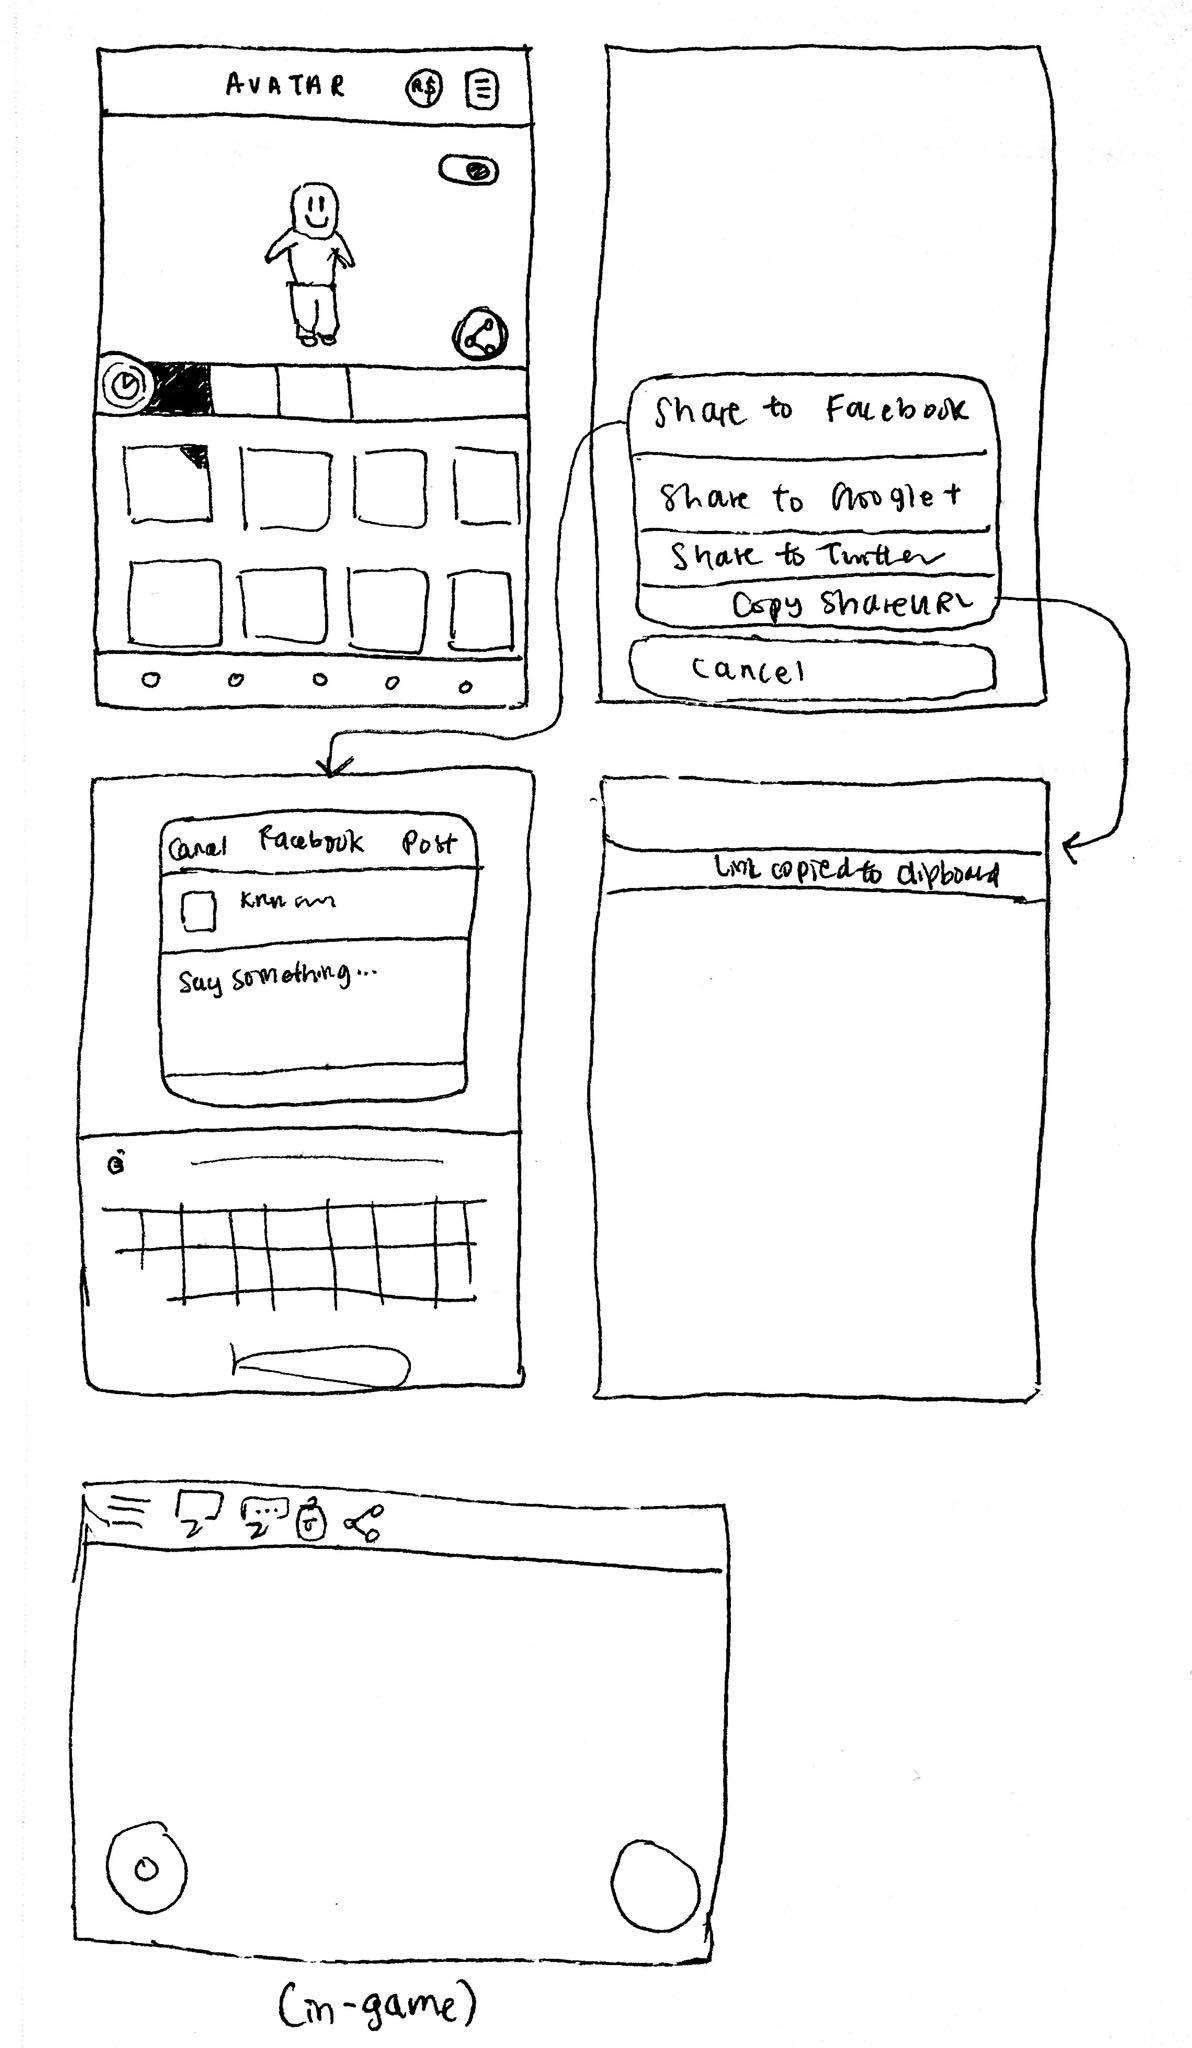 AVATAR R$
Share to Facebook
Share to Google+
Share to Twitter
Copy ShareURL
Cancel
Cancel Facebook Post
Say something...
Link copied to clipboard
(in-game)